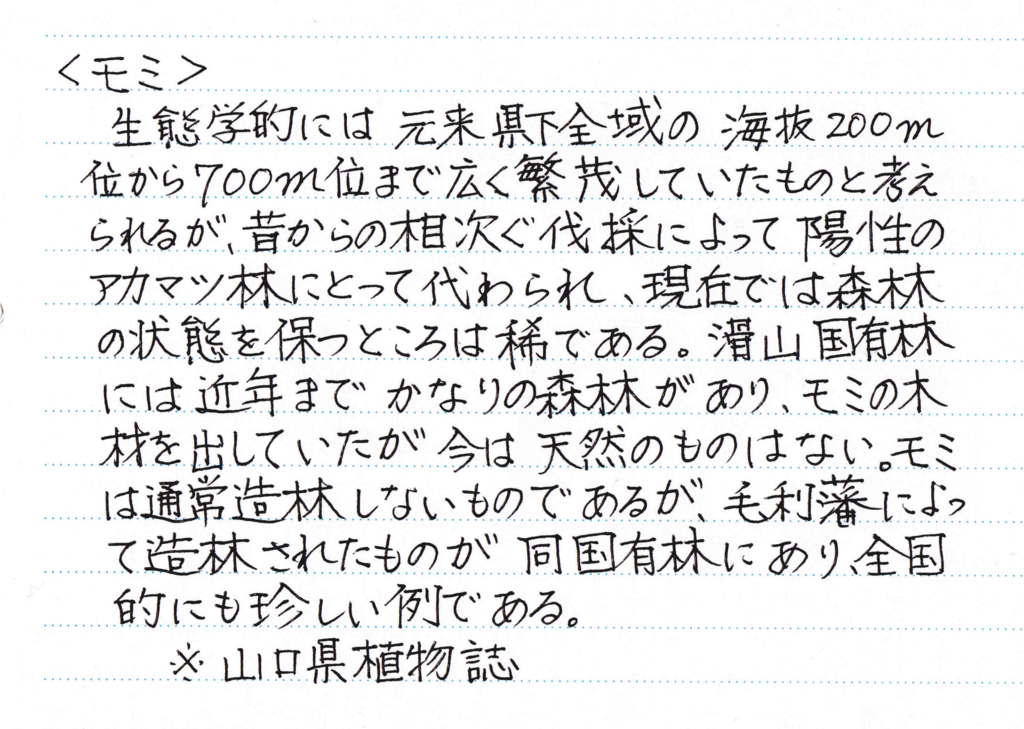 <モミ>
生態学的には元来県下全域の海抜200m
位から700m位まで広く繁茂していたものと考え
られるが、昔からの相次ぐ伐採によって陽性の
アカマツ林にとって代わられ、現在では森林
の状態を保つところは稀である。滑山国有林
には近年までかなりの森林があり、モミの木
材を出していたが今は天然のものはない。モミ
は通常造林しないものであるが、毛利藩によっ
て造林されたものが同国有林にあり、全国
的にも珍しい例である。
※山口県植物誌